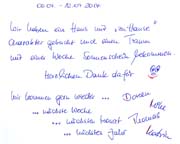 06.07. – 12.07.2014
Wir haben ein Haus mit „zu Hause"
Charakter gebucht und einen Traum
mit eine Woche Sonnenschein bekommen.
Herzlichen Dank dafür
Wir kommen gern wieder ... Doreen
... nächste Woche
... nächsten Monat Thomas
... nächstes Jahr